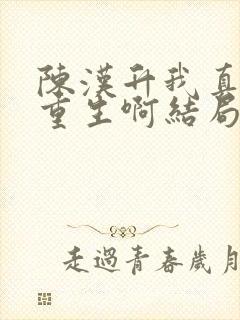 陳漢升我真
重生啊結局
走過青春歲月